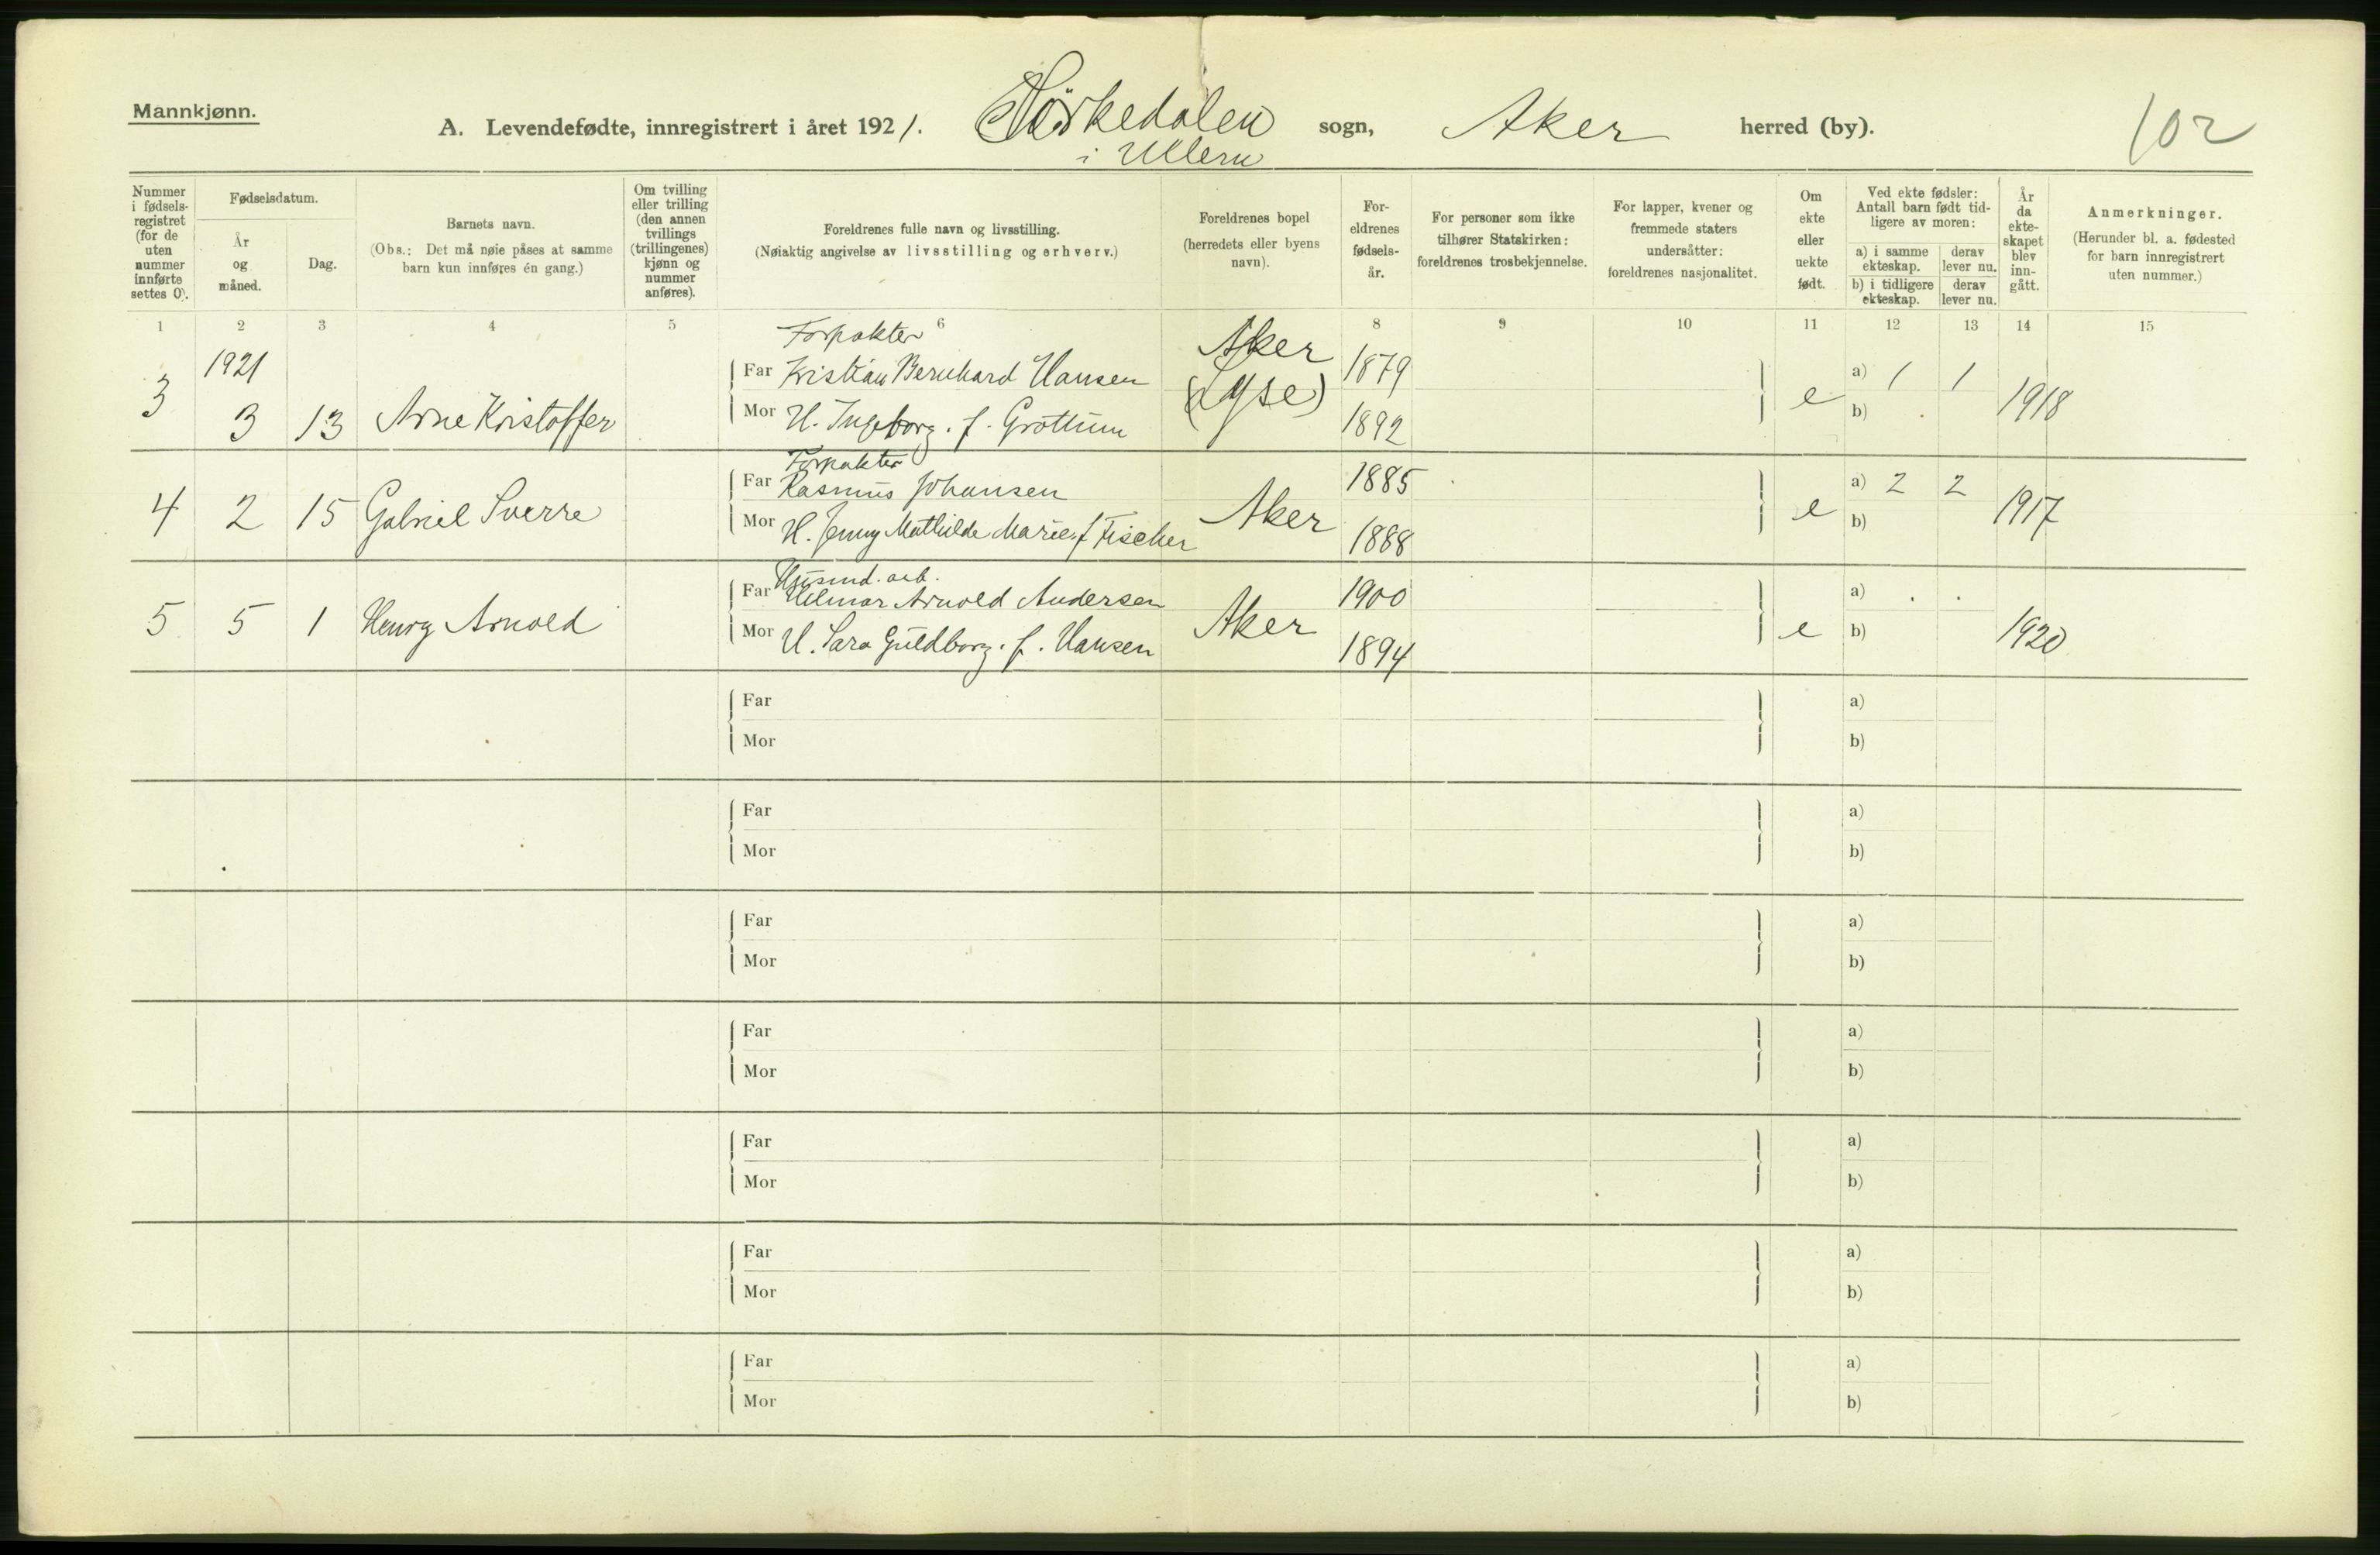 Mannkjønn.
A. Levendefødte, innregistrert i året 1921. Sørkedalen sogn, Aker herred (by).
i Ullern
102
Nummer i fødselsregistret (for de uten nummer innførte settes 0).
Fødselsdatum.
År og måned.
Dag.
Barnets navn.
(Obs.: Det må nøie påses at samme barn kun innføres én gang.)
Om tvilling eller trilling (den annen tvillings (trillingenes) kjønn og nummer anføres).
Foreldrenes fulle navn og livsstilling.
(Nøiaktig angivelse av livsstilling og erhverv.)
Foreldrenes bopel (herredets eller byens navn).
Foreldrenes fødselsår.
For personer som ikke tilhører Statskirken: foreldrenes trosbekjennelse.
For lapper, kvener og fremmede staters undersåtter: foreldrenes nasjonalitet.
Om ekte eller uekte født.
Ved ekte fødsler: Antall barn født tidligere av moren:
a) i samme ekteskap. derav lever nu.
b) i tidligere ekteskap. derav lever nu.
År da ekteskapet blev inngått.
Anmerkninger.
(Herunder bl. a. fødested for barn innregistrert uten nummer.)
1 2 3 4 5 6 8 9 10 11 12 13 14 15
Forpakter
1921 Far Kristian Bernhard Hansen Aker 1879 a) 1 1
3 3 13 Arne Kristoffer Mor H. Ingeborg. f. Grøttum (Lyse) 1892 e b) . 1918
Forpakter
Far Rasmus Johansen 1885 a) 2 2
4 2 15 Gabriel Sverre Mor H. Jenny Mathilde Marie f Fischer Aker 1888 e b) 1917
Husmd. arb.
Far Hilmar Arnold Andersen 1900 a) . .
5 5 1 Henry Arnold Mor H. Sara Guldborg. f. Hansen Aker 1894 e b) 1920
Far a)
Mor b)
Far a)
Mor b)
Far a)
Mor b)
Far a)
Mor b)
Far a)
Mor b)
Far a)
Mor b)
Far a)
Mor b)